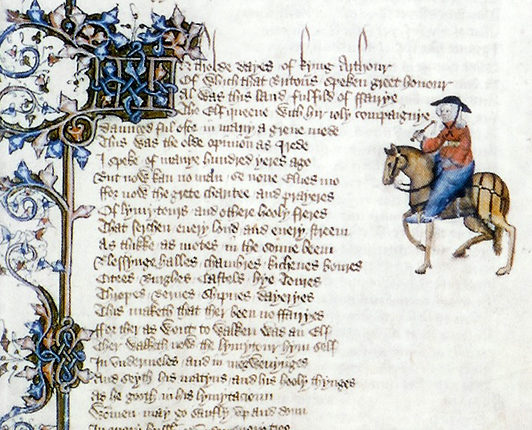 In tholde dayes of kyng Arthour
Of which that Britons speken greet honour
Al was this land fulfild of ffairye
The Elf queene with hir ioly compaignye
Daunced ful ofte in many a grene mede
This was the olde opinion as I rede
I speke of manye hundred yeres ago
But now kan no man se none Elues mo
ffor now the grete charitee and prayeres
Of lymytours and othere hooly freres
That serchen euery lond and euery streem
As thikke as motes in the sonne beem
Blessynge halles chambres kichenes boures
Citees Burghes Castels hye Toures
Thropes Bernes Shipnes dayeryes
This maketh that ther been no ffairyes
ffor ther as wont to walken was an Elf
Ther walketh now the lymytour hym self
In vndermeles and in morwenynges
And seyth his matyns and his hooly thynges
As he gooth in his lymytacioun
Wommen may go saufly vp and doun
In euery